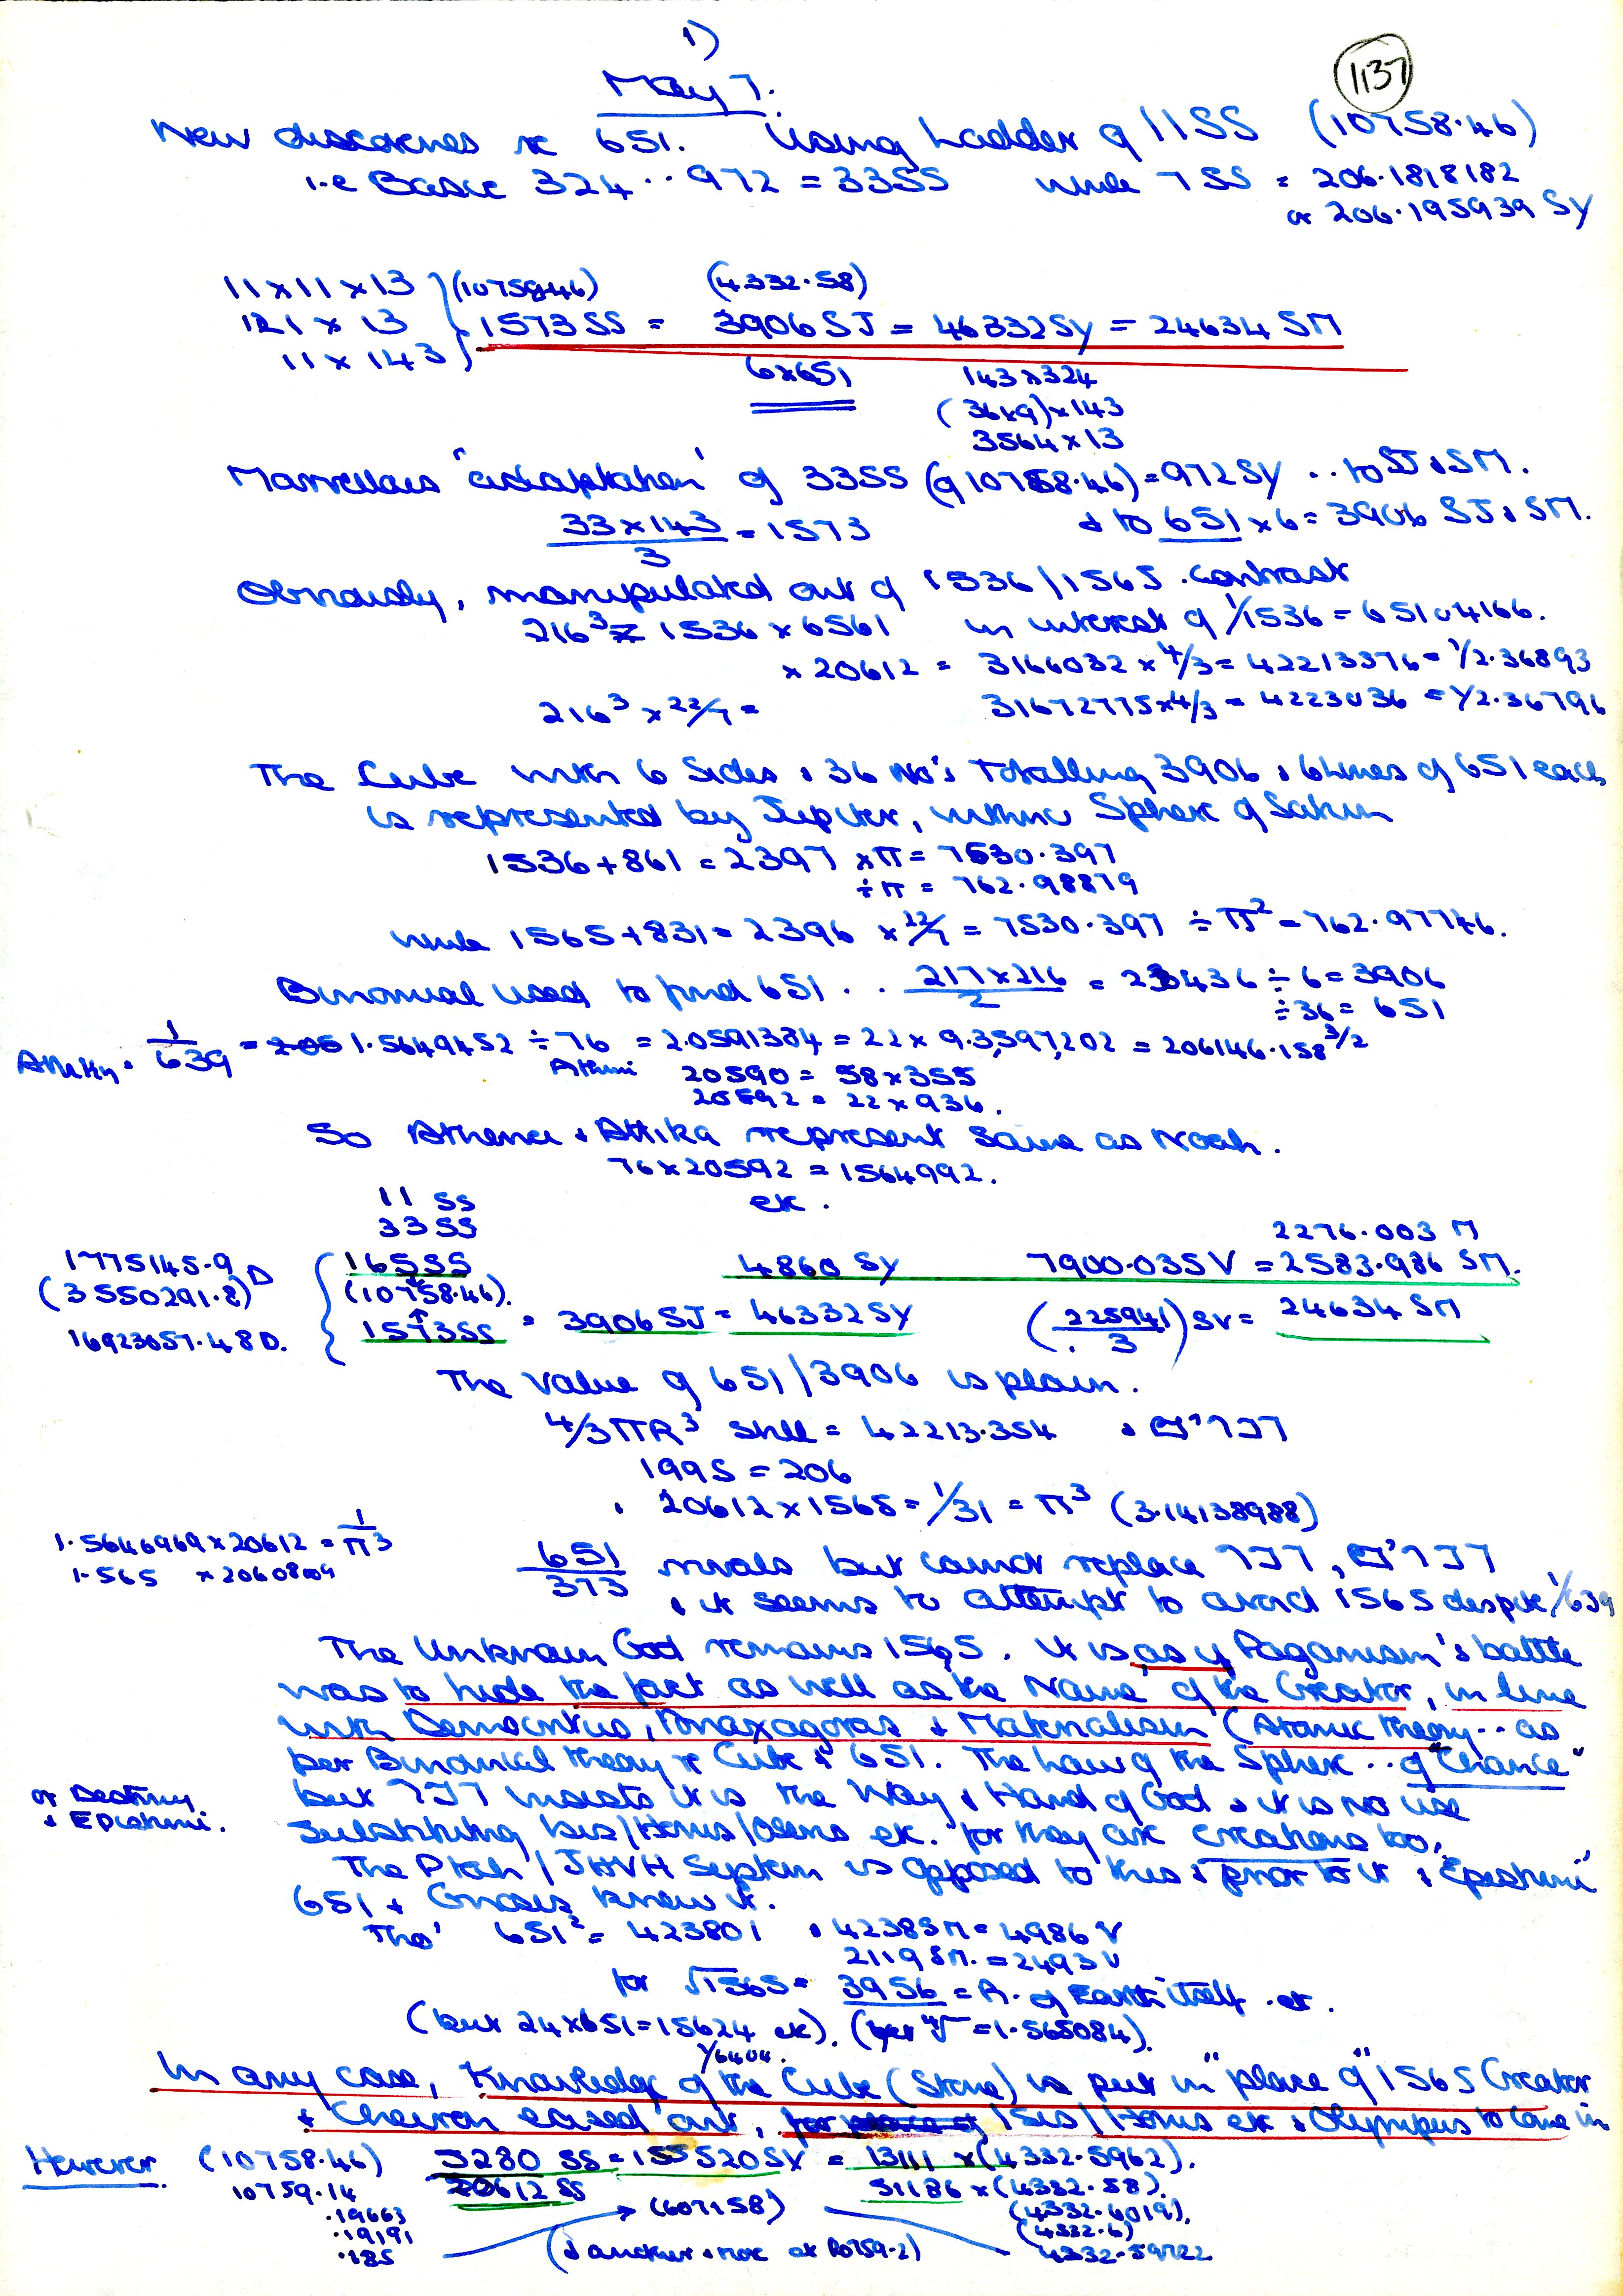 1)
1137
May 7.
New discoveries re 651. Using Ladder of 11SS (10758.46)
i.e Basic 324 .. 972 = 33SS while 7SS = 206.1818182
or 206.195939 SY
11 x 11 x 13 (10758.46) (4332.58)
121 x 13 1573 SS = 3906 SJ = 46332 SY = 24634 SM
11 x 143
6x651 143 x 324
(36x9) x 143
3564 x 13
Marvellous 'adaptation' of 33SS (of 10758.46) = 972 SY .. to SJ & SM.
33 x 143 / 3 = 1573 & to 651 x 6 = 3906 SJ & SM.
Obviously, manipulated out of 1536/1565 contrast
216³ = 1536 x 6561 in interest of 1/1536 = 65104166.
x 20612 = 3166032 x 4/3 = 42213376 = 1/2.36893
216³ x 22/7 = 31672775 x 4/3 = 4223036 = 1/2.36796
The Cube with 6 Sides & 36 No's Totalling 3906 & 6 lines of 651 each
is represented by Jupiter, within Sphere of Saturn
1536 + 861 = 2397 x π = 7530.397
÷ π = 762.98879
while 1565 + 831 = 2396 x 22/7 = 7530.397 ÷ π² = 762.97746.
Binomial used to find 651 .. 217 x 216 / 2 = 23436 ÷ 6 = 3906
÷ 36 = 651
1/639 = 1.5649452 ÷ 76 = 2.0591384 = 22 x 9.3597202 = 206146.158 3/2
20590 = 58 x 355
20592 = 22 x 936.
So Athena & Attika represent same as Noah.
76 x 20592 = 1564992.
etc.
11 SS
33 SS
2276.003 M
1775145.9 D 165SS 4860 SY 7900.035V = 2583.986 SM.
(3550291.8) (10758.46).
16923057.48 D. 1573SS = 3906 SJ = 46332 SY (225941 / 3) SV = 24634 SM
The value of 651/3906 is plain.
4/3 πR³ Shell = 42213.354
1995 = 206
, 20612 x 1565 = 1/31 = π³ (3.14138988)
1.5646969 x 20612 = 1/π³
1.565 x 20608009
651/373 rivals but cannot replace
& it seems to attempt to avoid 1565 despite 1/639
The Unknown God remains 1565. It is as if Paganism's battle
was to hide the fact as well as the Name of the Creator, in line
with Democritus, Anaxagoras & Materialism (Atomic theory .. as
per Binomial theory re Cube & 651. The law of the Sphere .. of "Chance"
or Destiny
& Epistemi.
but insists it is the Way & Hand of God & it is no use
Substituting Isis/Horus/Osiris etc. for they are creations too.
The Ptah/JHVH System is opposed to this & prior to it & 'Epistemi'
651 & Gnosis knew it.
Tho' 651² = 423801 & 4238 SM = 4986 V
2119 SM. = 2493 V
for √1565 = 3956 = R. of Earth itself. etc.
(but 24 x 651 = 15624 etc). ( = 1.565084).
1/6404.
In any case, Knowledge of the Cube (Stone) is put in "place of" 1565 Creator
& Cheiron eased out, for Isis/Horus etc & Olympus to come in
However (10758.46) 5280 SS = 155520 SY = 13111 x (4332.5962).
10759.14 20612 SS 51186 x (4332.58).
.19663 (607158) (4332.6019).
.19191 (4332.6)
.185 (& another & more etc 10759.2) 4332.59722